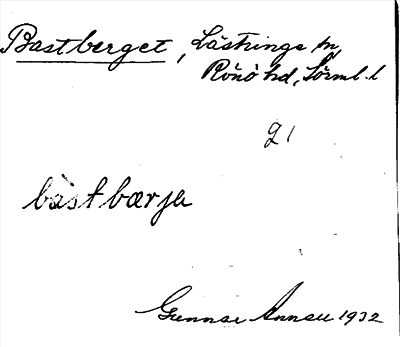 Bastberget, Lästringe sn,
Rönö hd, Sörml. l
g 1
bàstbærja
Gunnar 1932